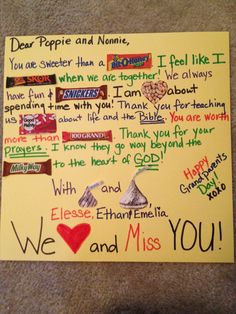 Dear Poppie and Nonnie,
You are sweeter than a Bit-O-Honey I feel like I
SKOR when we are together! We always
have fun & SNICKERS I am about
spending time with you! Thank you for teaching
us about life and the Bible. You are worth
more than 100 GRAND. Thank you for your
prayers. I know they go way beyond the
MilkyWay to the heart of GOD!
With and
Elesse, Ethan, Emelia
Happy
Grandparents
Day!
XOXO
We and Miss YOU!